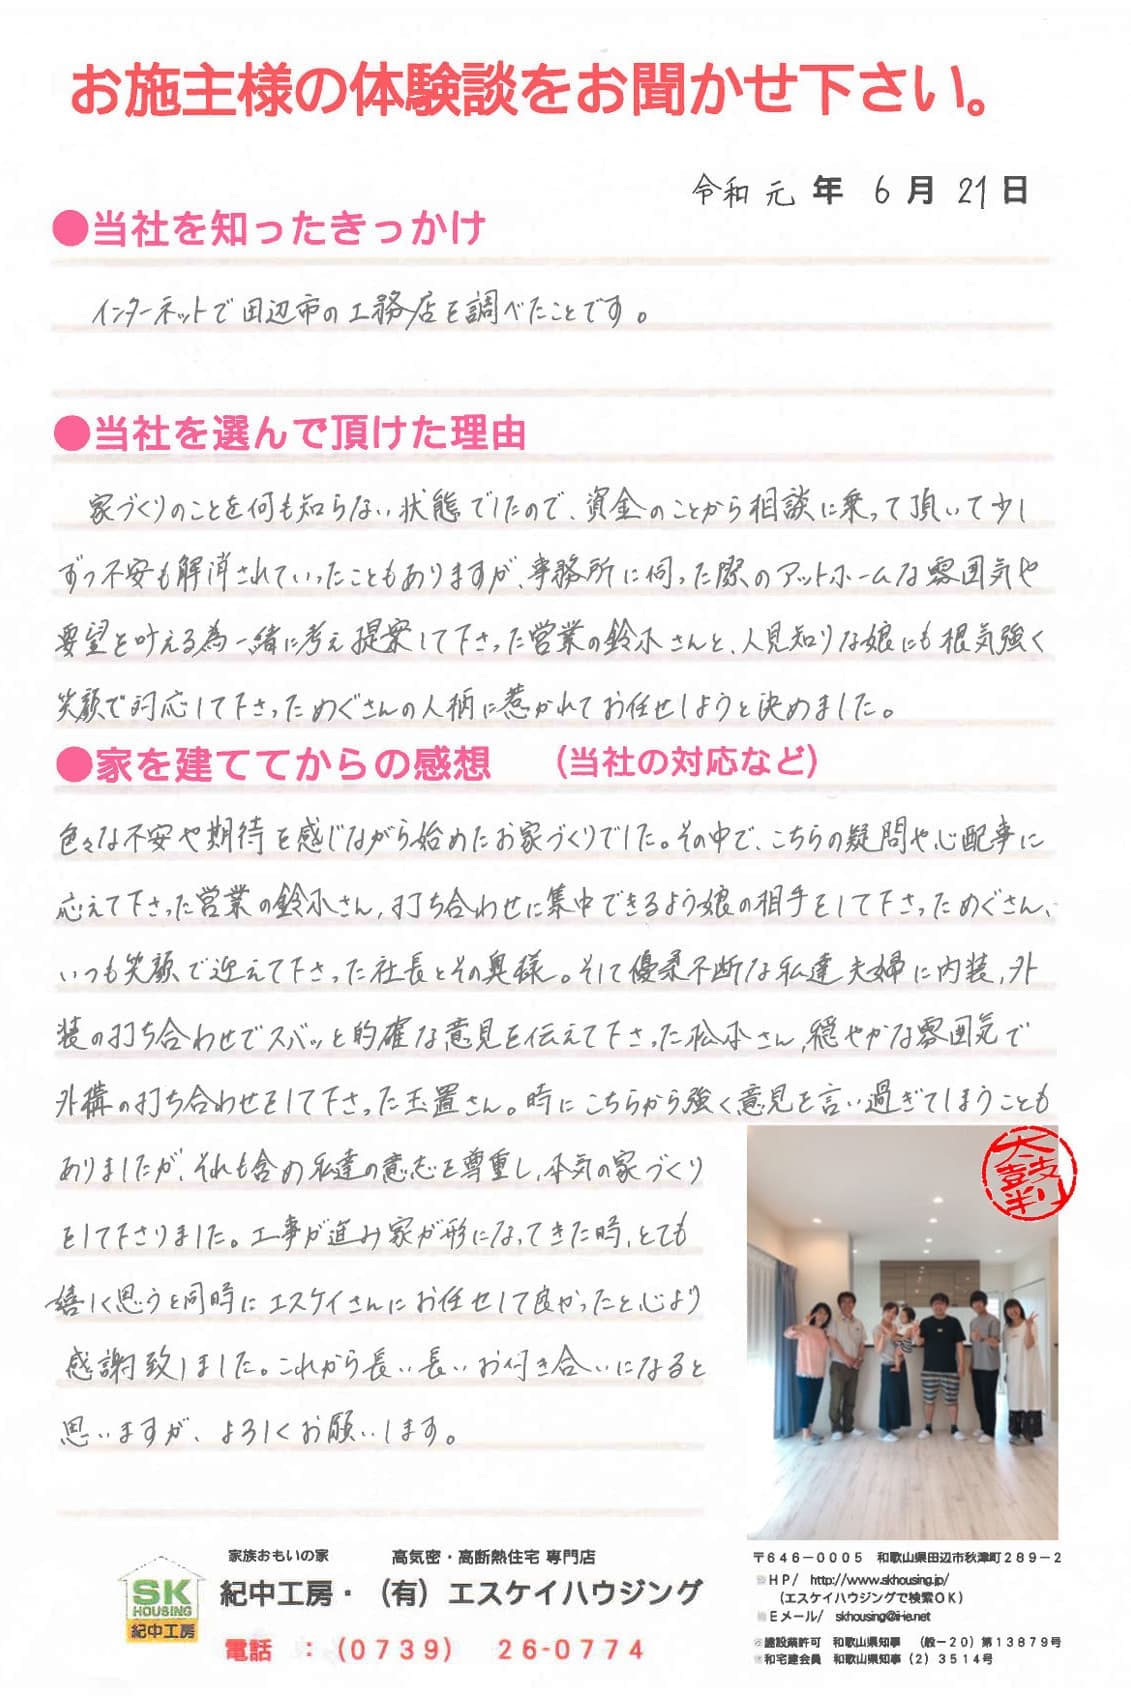 お施主様の体験談をお聞かせ下さい。
令和 元 年 6 月 21 日
●当社を知ったきっかけ
インターネットで田辺市の工務店を調べたことです。
●当社を選んで頂けた理由
家づくりのことを何も知らない状態でしたので、資金のことから相談に乗って頂いて少し
ずつ不安も解消されていったこともありますが、事務所に伺った際のアットホームな雰囲気や
要望を叶える為一緒に考え提案して下さった営業の鈴木さんと、人見知りな娘にも根気強く
笑顔で対応して下さっためぐさんの人柄に惹かれてお任せしようと決めました。
●家を建ててからの感想 (当社の対応など)
色々な不安や期待を感じながら始めたお家づくりでした。その中で、こちらの疑問や心配事に
応えて下さった営業の鈴木さん,打ち合わせに集中できるよう娘の相手をして下さっためぐさん、
いつも笑顔で迎えて下さった社長とその奥様。そして優柔不断な私達夫婦に内装,外
装の打ち合わせでズバッと的確な意見を伝えて下さった松本さん,穏やかな雰囲気で
外構の打ち合わせをして下さった玉置さん。時にこちらから強く意見を言い過ぎてしまうことも
ありましたが、それも含め私達の意志を尊重し、本気の家づくり
をして下さりました。工事が進み家が形になってきた時、とても
嬉しく思うと同時にエスケイさんにお任せして良かったと心より
感謝致しました。これから長い長いお付き合いになると
思いますが、よろしくお願いします。
太鼓判
SK
HOUSING
紀中工房
家族おもいの家 高気密・高断熱住宅 専門店
紀中工房・（有）エスケイハウジング
電話 ：（0739） 26-0774
〒646－0005 和歌山県田辺市秋津町289－2
HP/ http://www.skhousing.jp/
（エスケイハウジングで検索OK）
Eメール/ skhousing@i-ie.net
建設業許可 和歌山県知事 （般－20）第13879号
和宅建会員 和歌山県知事（2）3514号